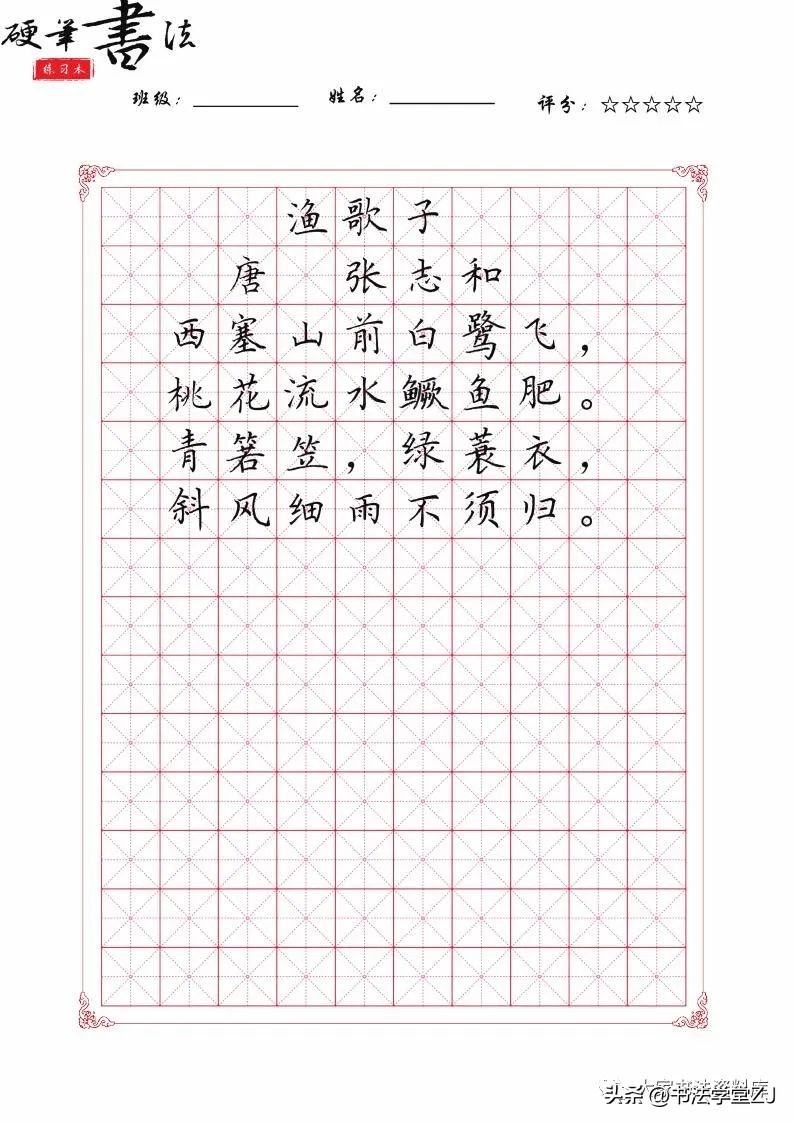 硬笔書法
练习本
班级： 姓名： 评分：☆☆☆☆☆
渔歌子
唐 张志和
西塞山前白鹭飞，
桃花流水鳜鱼肥。
青箬笠，绿蓑衣，
斜风细雨不须归。
大家书法资料库
头条@书法学堂ZJ